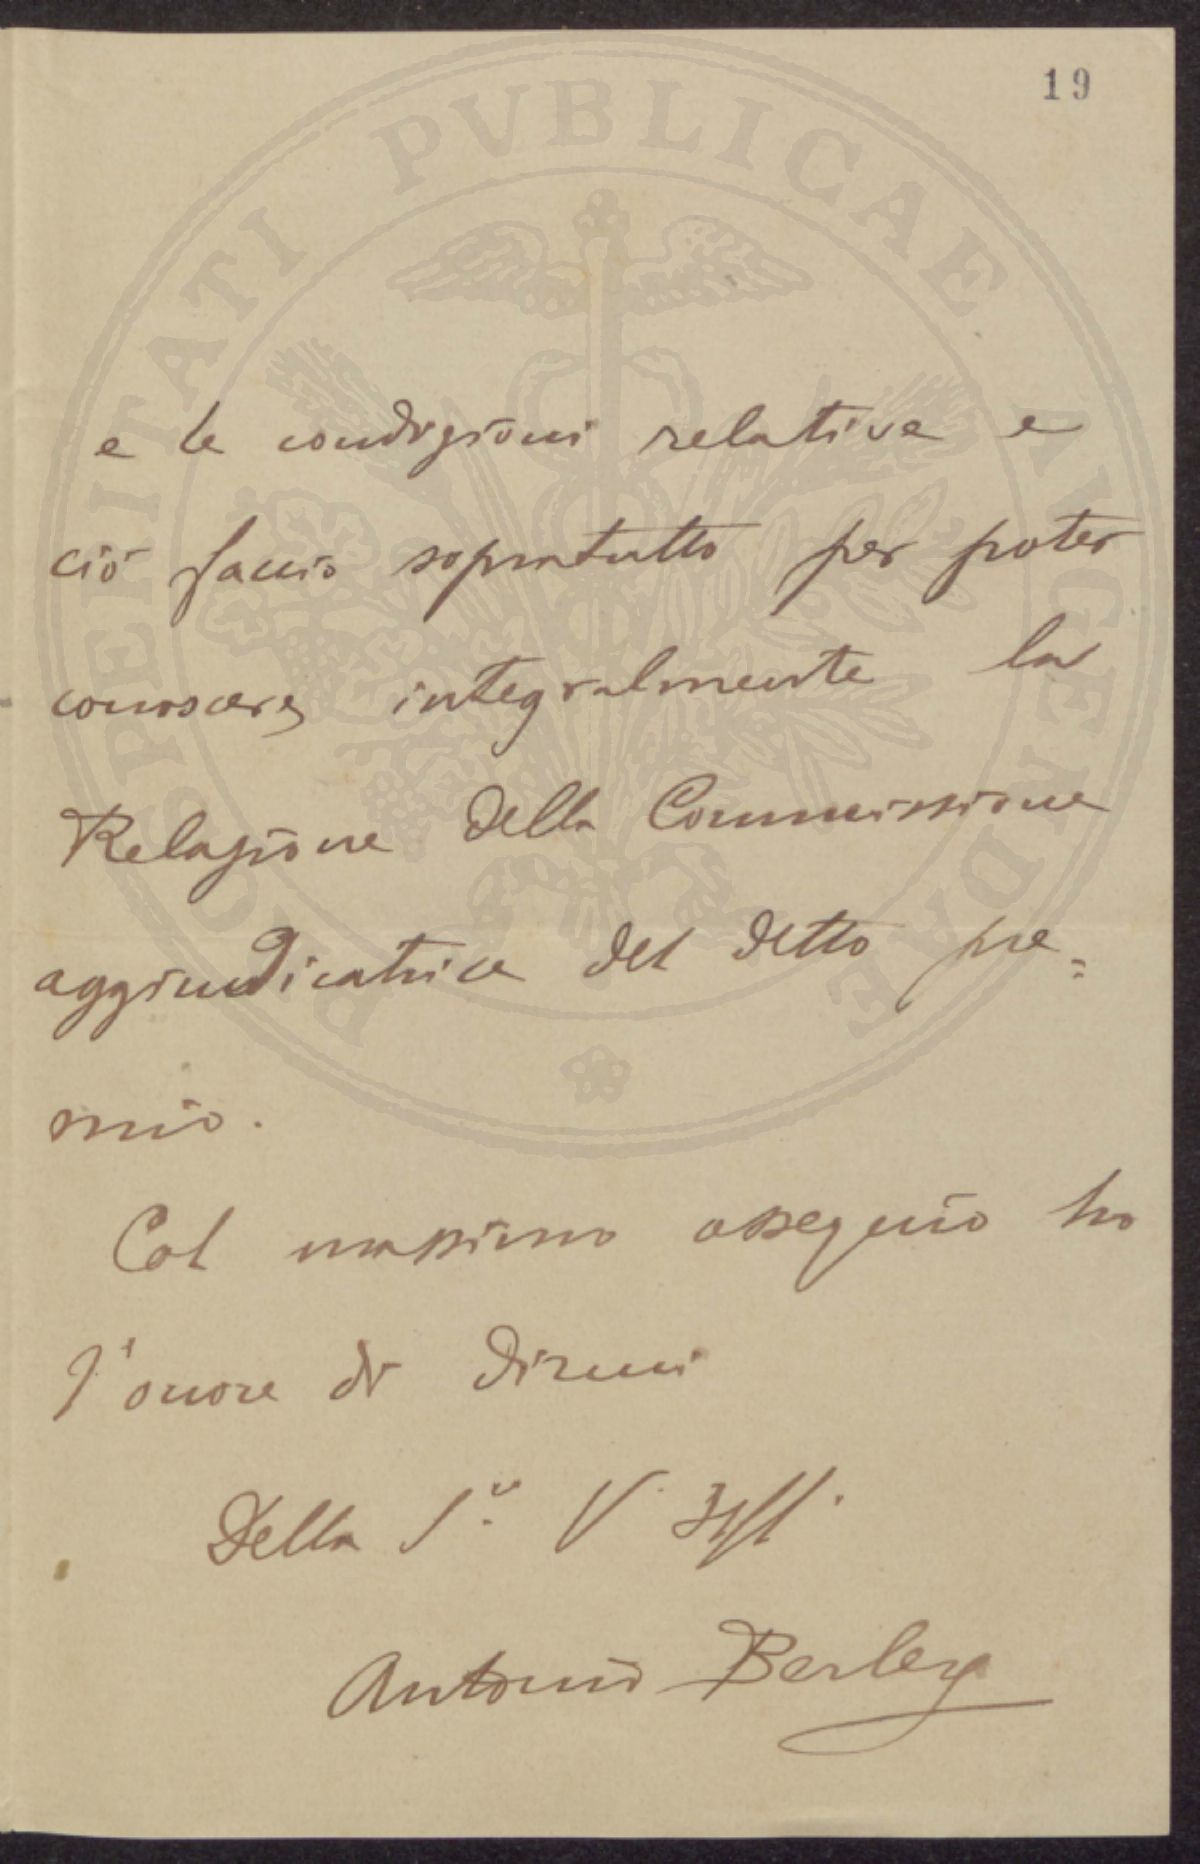 19
e le condizioni relative e
ciò faccio sopratutto per poter
conoscere integralmente la
Relazione della Commissione
aggiudicatrice del detto pre=
mio.
Col massimo ossequio ho
l'onore di dirmi
Della S.ª V. Ill.
Antonio Berlese
PROSPERITATI PVBLICAE AVGENDAE